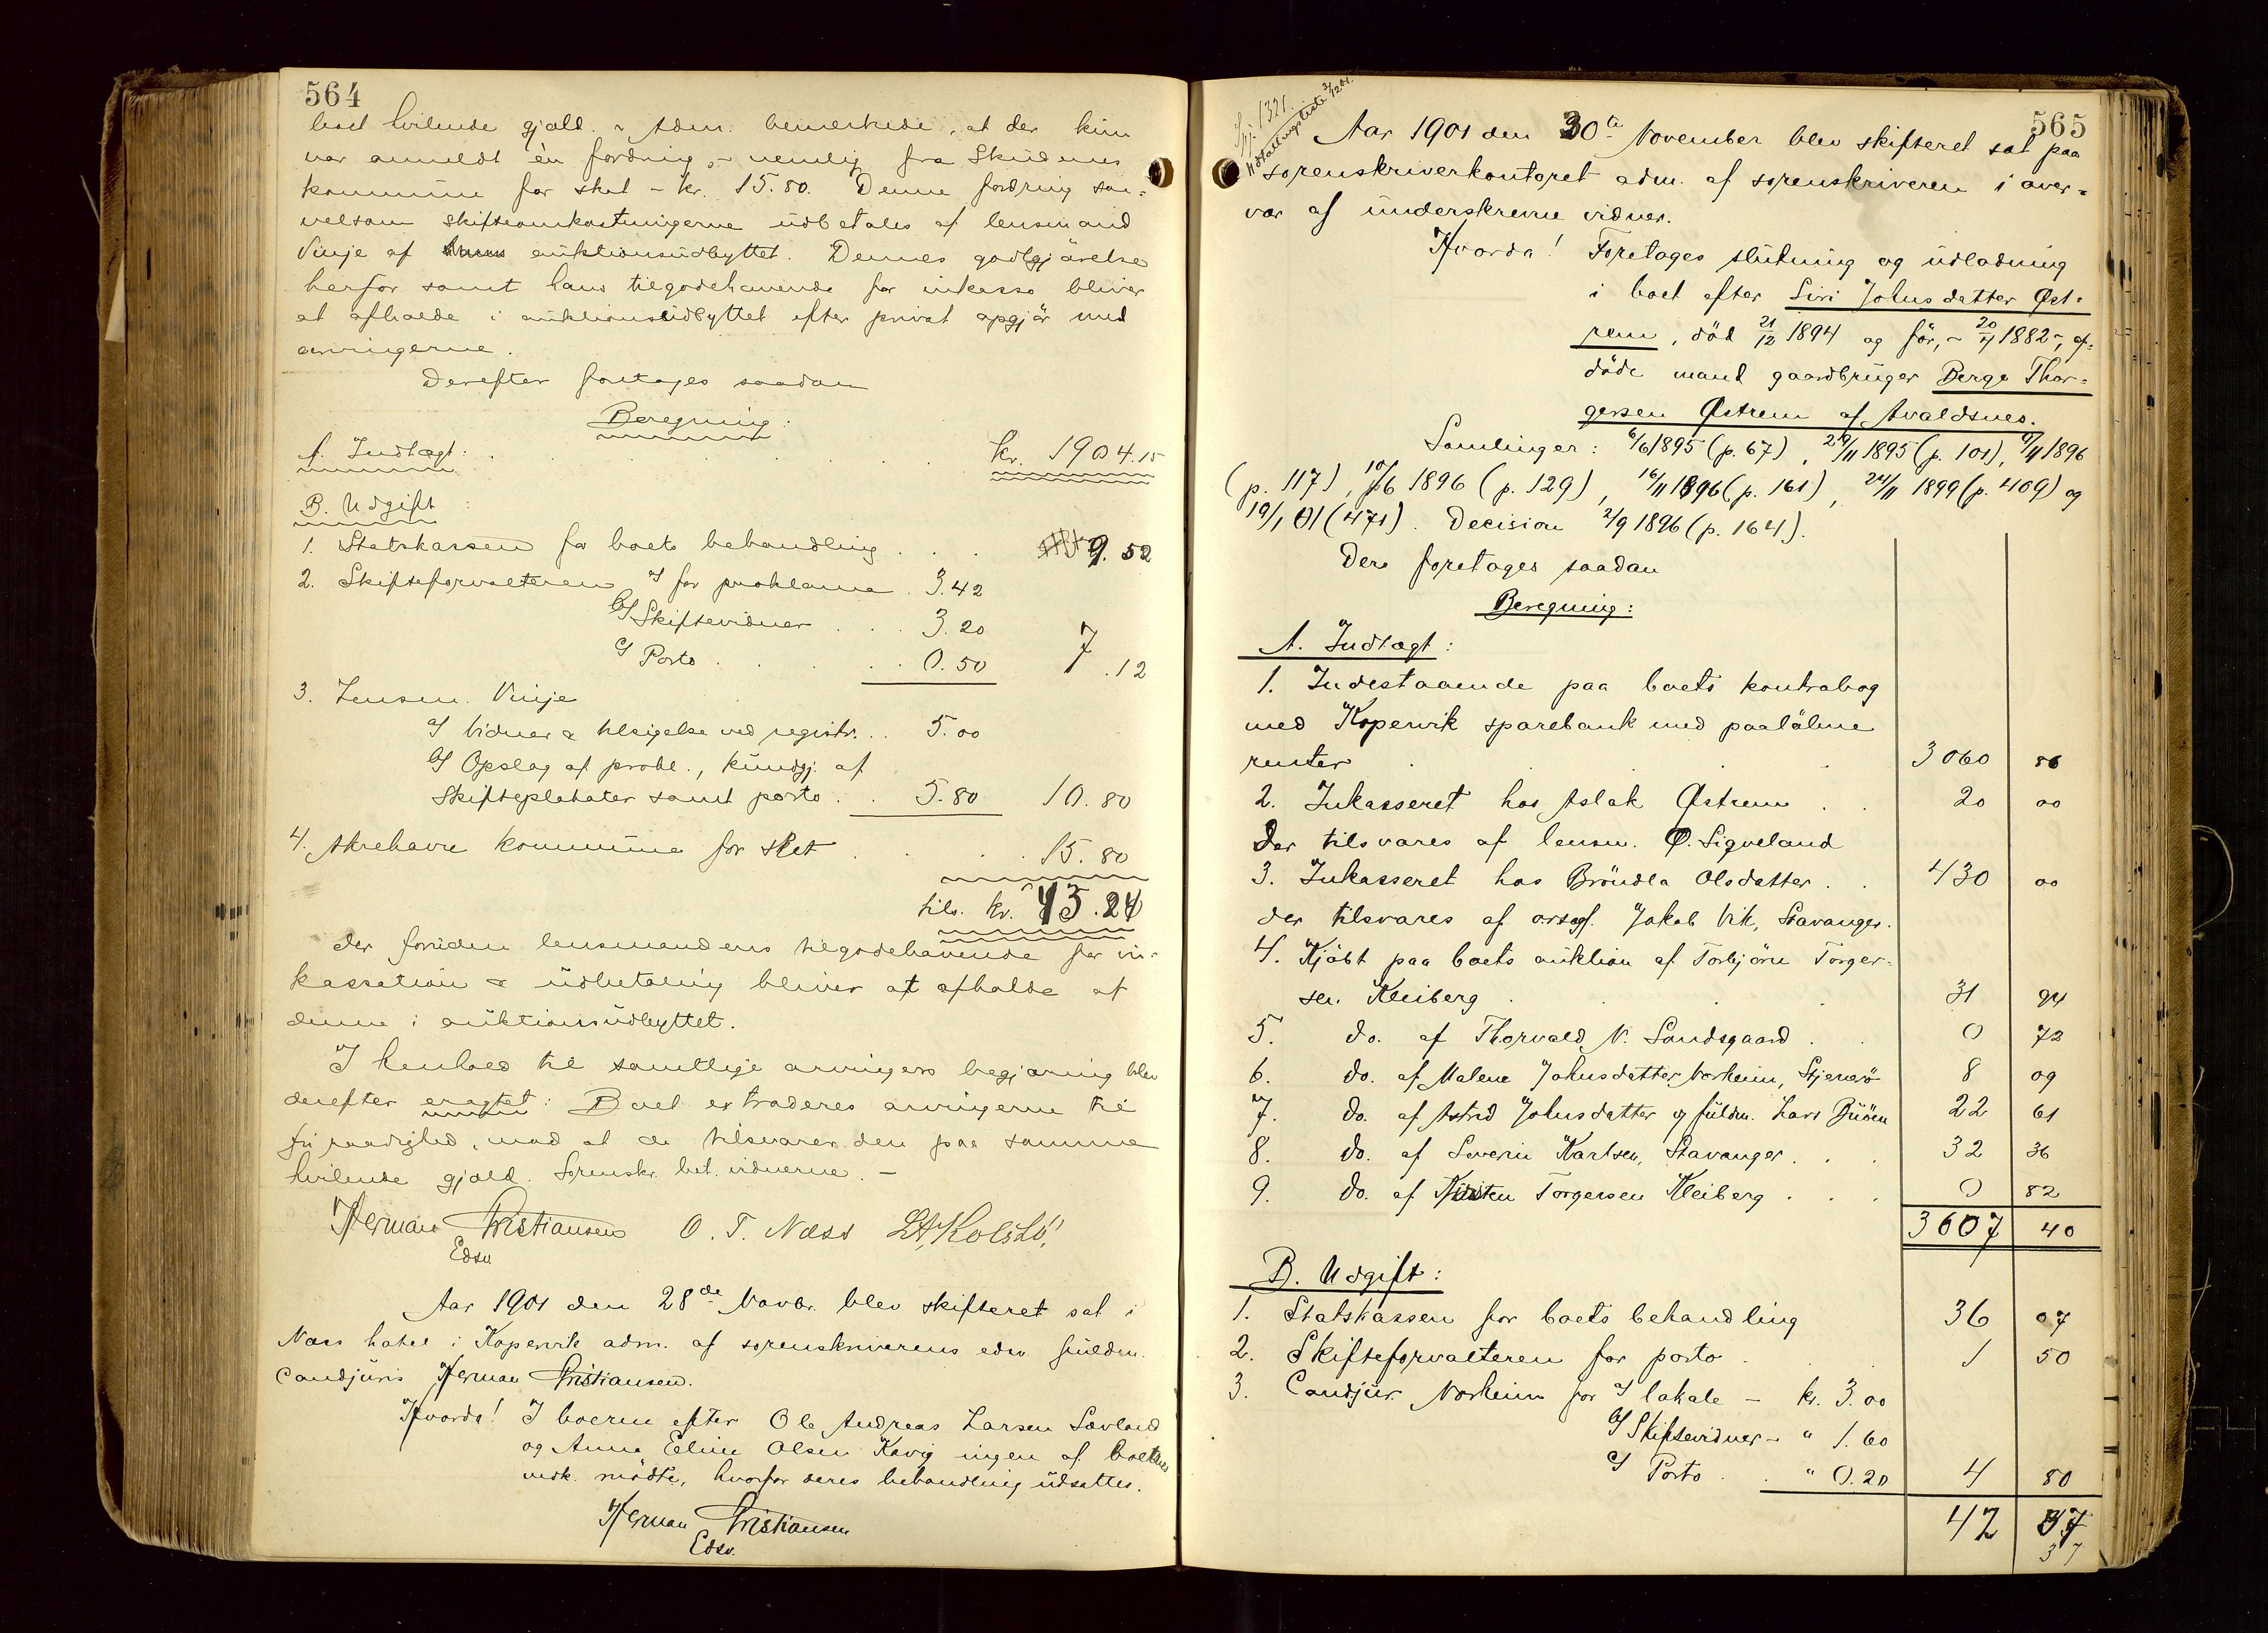 564
boet hvilende gjæld. - Adm. bemerkede, at der kun
var anmeldt én fordring, - nemlig fra Skudenes
kommune for skat - kr. 15.80. Denne fordring saa=
velsom skifteomkostningerne udbetales af lensmand
Vinje af auktionsudbyttet. Dennes godtgjørelse
herfor samt hans tilgodehavende for inkasso bliver
at afholde i auktionsudbyttet efter privat opgjør med
arvingerne.
Derefter foretages saadan
Beregning:
A. Indtægt: kr. 1904.15
B. Udgift:
1. Statskassen for boets behandling . . . 9.52
2. Skifteforvalteren a/ for proklama . 3.42
b/ Skiftevidner . . . 3.20
c/ Porto . . . . . 0.50 7.12
3. Lensm. Vinje
a/ Vidner & tilsigelse ved registr. . . 5.00
b/ Opslag af prokl., kundgj. af
Skifteplakater samt porto . . 5.80 10.80
4. Akrehavn kommune for skat . . . . 15.80
tils. kr. 43.24
der foruden lensmandens tilgodehavende for in-
kassation & udbetaling bliver at afholde af
denne i auktionsudbyttet.
I henhold til samtlige arvingers begjæring blev
derefter eragtet: Boet extraderes arvingerne til
fri raadighed, mod at de tilsvarer den paa samme
hvilende gjæld. Sorenskr. bet. vidnerne. -
Herman Christiansen O. T. Næss L.A. Kolstø.
Edsv.
Aar 1901 den 28de Novbr. blev skifteret sat i
Næss hotel i Kopervik adm. af sorenskriverens edsv fuldm.
Candjuris Herman Christiansen.
Hvorda! I boerne efter Ole Andreas Larsen Søvland
og Anna Eline Olsen Kavig ingen af boernes
vedk. mødte, hvorfor deres behandling udsattes.
Herman Christiansen
Edsv.
565
Spj. 1321.
Udtællingsliste 3/12 01.
Aar 1901 den 30te November blev skifteret sat paa
sorenskriverkontoret adm. af sorenskriveren i over=
vær af underskrevne vidner.
Hvorda! Foretages slutning og udlodning
i boet efter Siri Johnsdatter Øst=
rem, død 21/12 1894 og før, - 20/4 1882 -, af=
døde mand gaardbruger Berge Thor=
gersen Østrem af Avaldsnes.
Samlinger: 6/6 1895 (p. 67), 29/11 1895 (p. 101), 9/4 1896
(p. 117), 10/6 1896 (p. 129), 16/11 1896 (p. 161), 24/11 1899 (p. 409) og
19/1 01 (471). Decision 2/9 1896 (p. 164).
Der foretages saadan
Beregning:
A. Indtægt:
1. Indestaaende paa boets kontrabog
med Kopervik sparebank med paaløbne
renter . . . . 3060 86
2. Inkasseret hos Aslak Østrem . . 20 00
der tilsvares af lensm. O. Sigveland
3. Inkasseret hos Brøndla Olsdatter . . 430 00
der tilsvares af orsagf. Jakob Vik, Stavanger.
4. Kjøbt paa boets auktion af Torbjørn Torger-
sen Kleiberg . . . 31 94
5. do. af Thorvald N. Sandsgaard . . 0 72
6. do. af Malene Johnsdatter Norheim, Stjernerø 8 09
7. do. af Astrid Johnsdatter og fuldm. Lars Buøen 22 61
8. do. af Severin Karlsen, Stavanger . . . 32 36
9. do. af Torgersen Kleiberg . . . 0 82
3607 40
B. Udgift:
1. Statskassen for boets behandling 36 07
2. Skifteforvalteren for porto . . . 1 50
3. Candjur. Norheim for a/ lokale - kr. 3.00
b/ Skiftevidner - " 1.60
c/ Porto . . " 0.20 4 80
42 37
37